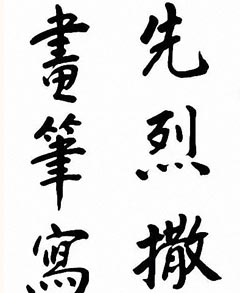 先烈撒
畫筆寫